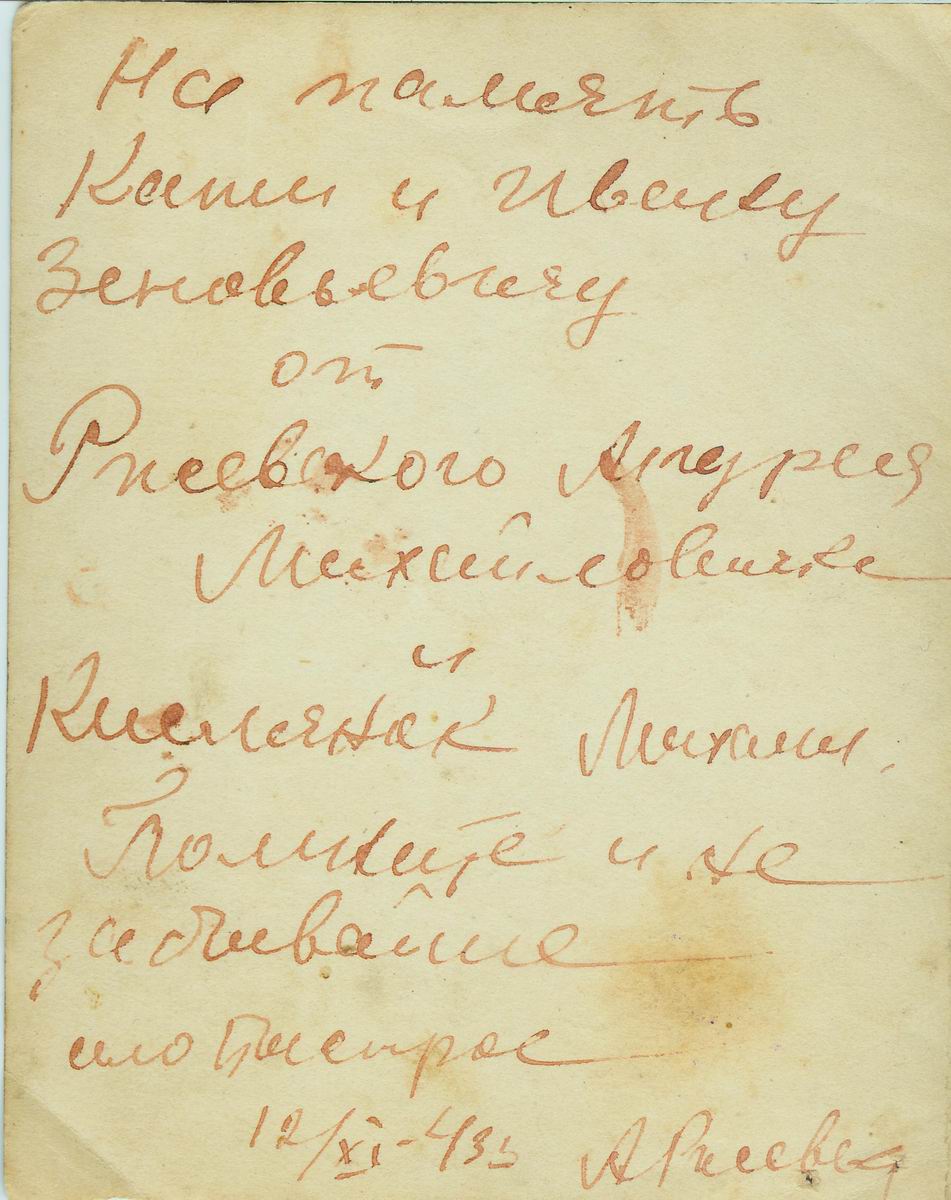 На память
Кати и Ивану
Зеновьевичу
от
Ржевского Андрея
Михайловича
и
Киеленяк Михаил.
Помните и не
забывайте
12/XI-43г А Ржевск